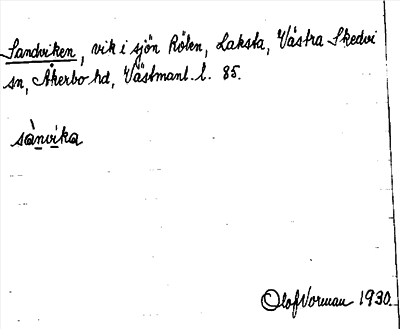 Sandviken, vik i sjön Rölen, Laksta, Västra Skedvi
sn, Åkerbo hd, Västmanl. l. 85.
sànvika
Olof Norman 1930.